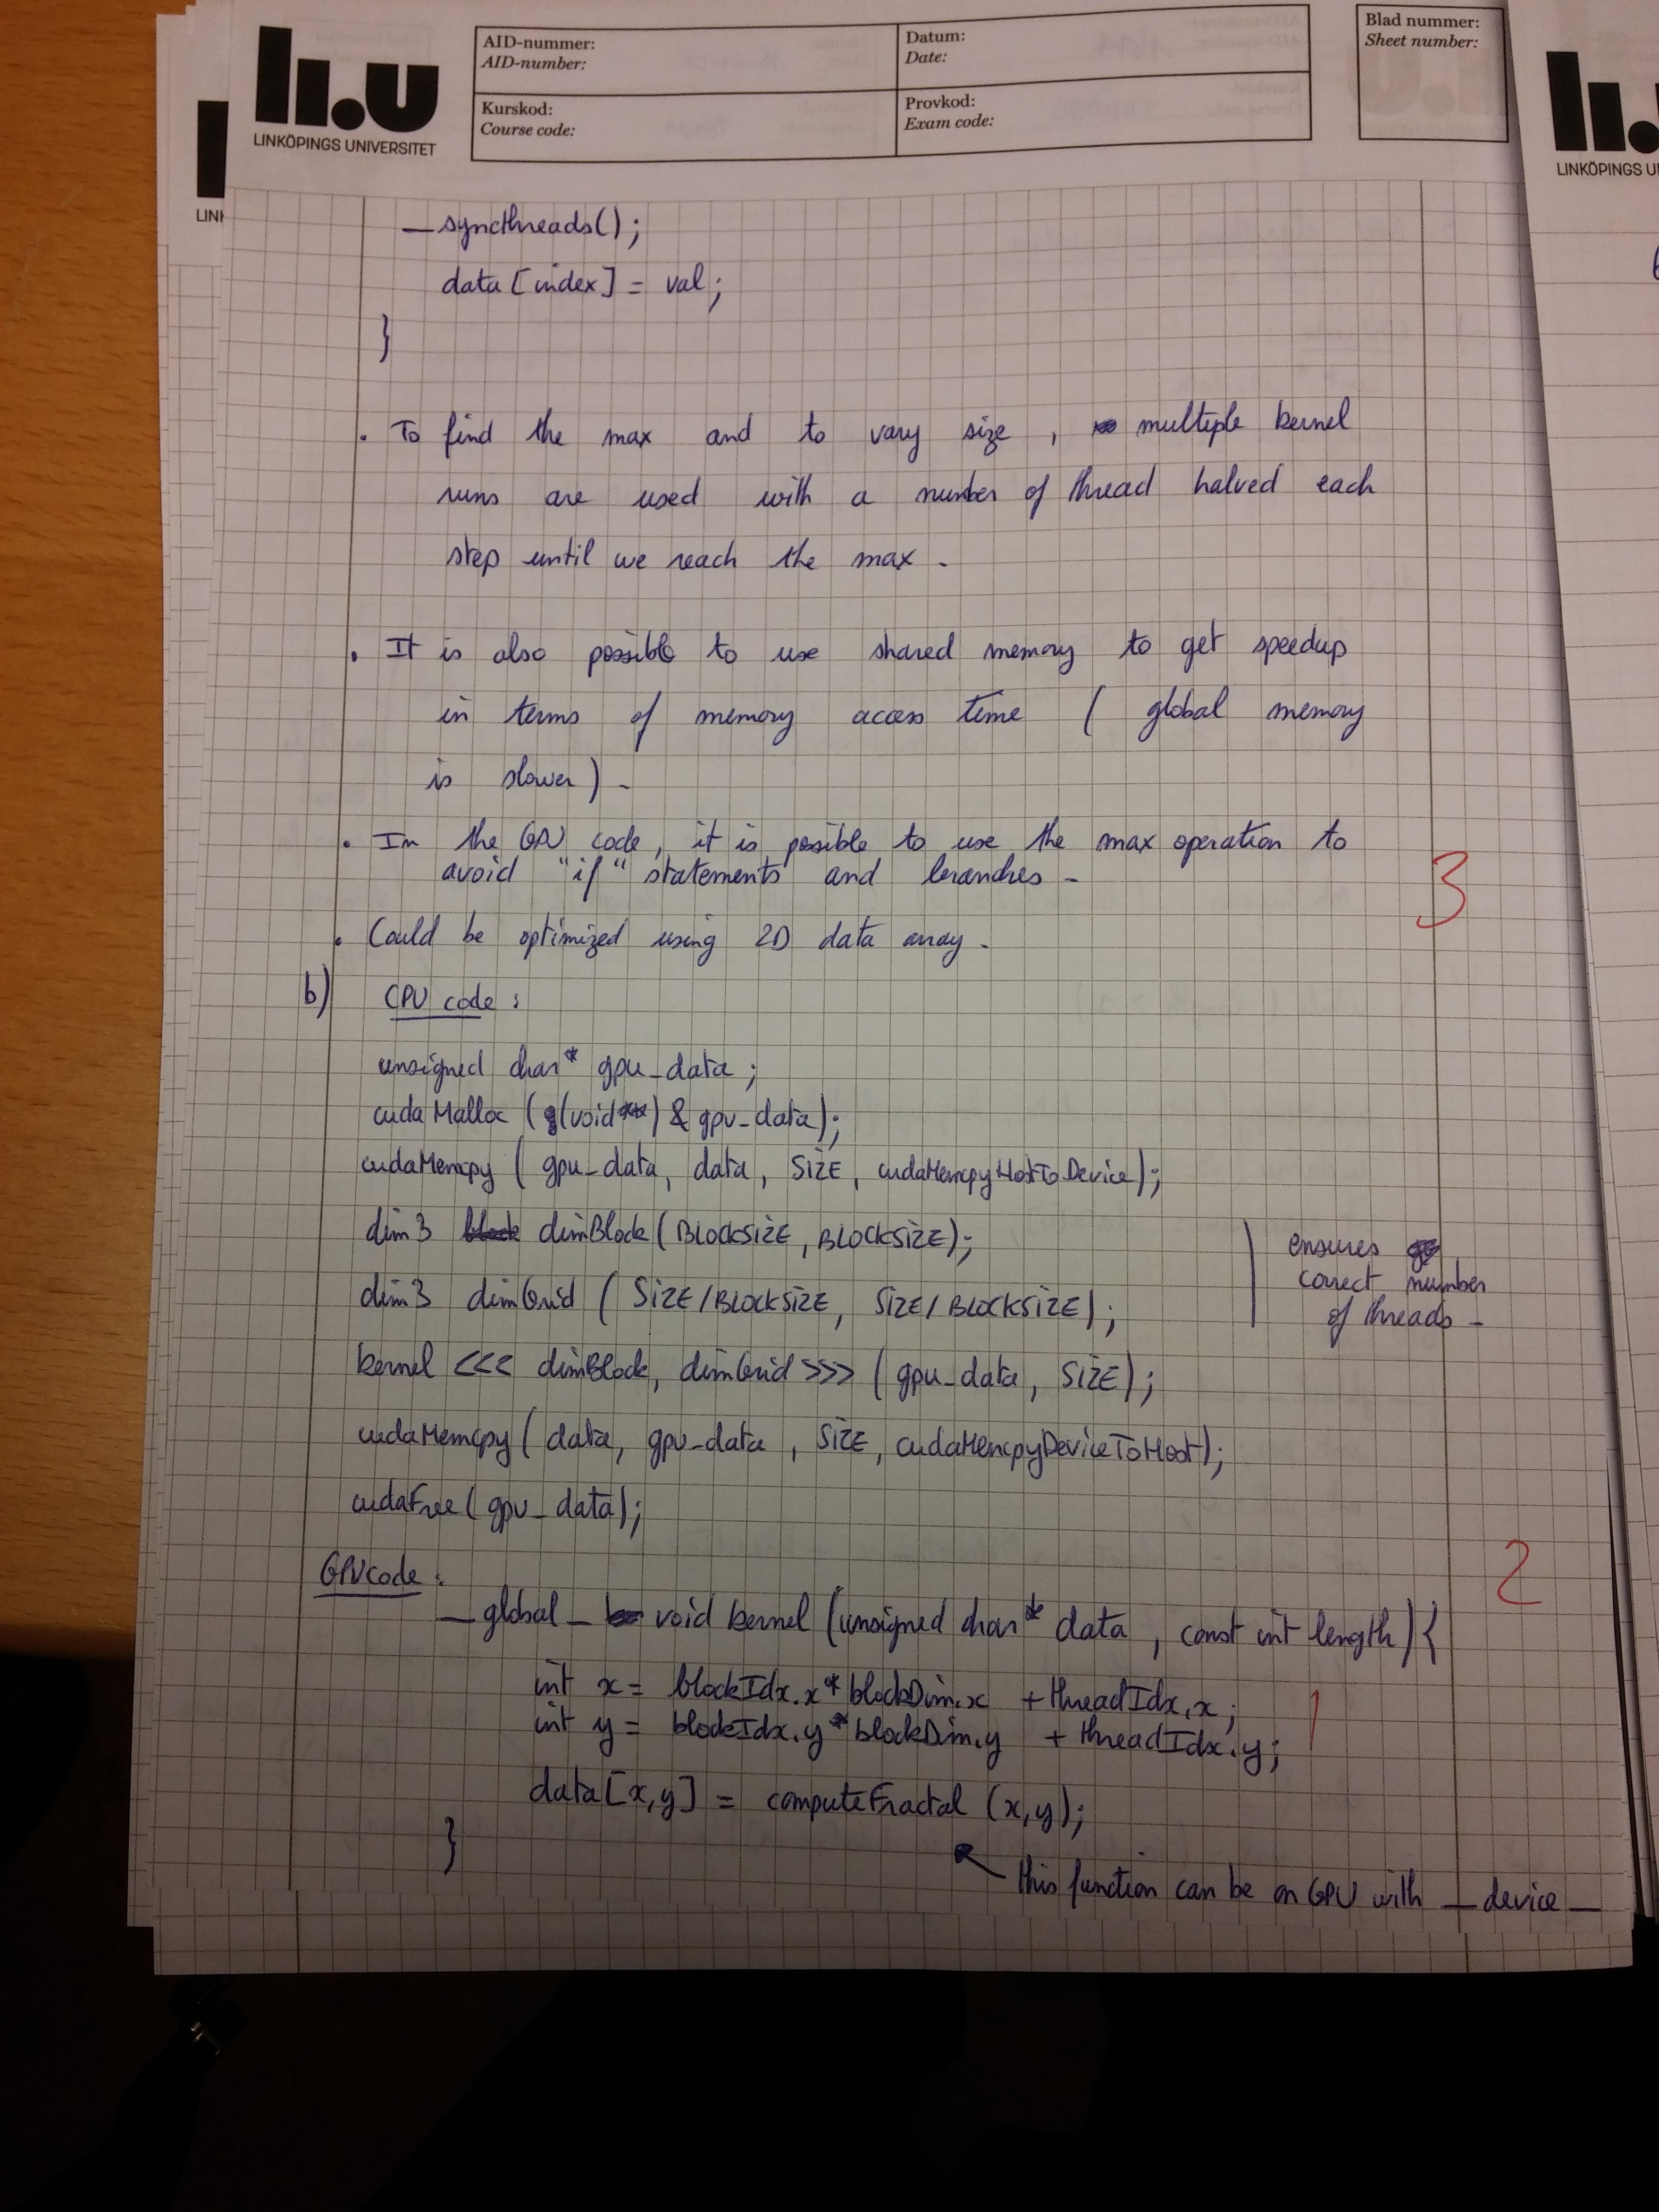 li.u
LINKÖPINGS UNIVERSITET
AID-nummer:
AID-number:
Datum:
Date:
Kurskod:
Course code:
Provkod:
Exam code:
Blad nummer:
Sheet number:
LINKÖPINGS U
LIN
__syncthreads();
data[index] = val;
}
. To find the max and to vary size , multiple kernel
runs are used with a number of thread halved each
step until we reach the max.
. It is also possible to use shared memory to get speedup
in terms of memory access time ( global memory
is slower ).
. In the GPU code, it is possible to use the max operation to
avoid "if" statements and branches.
. Could be optimized using 2D data array.
3
b) CPU code :
unsigned char* gpu_data ;
cudaMalloc ((void**) & gpu_data);
cudaMemcpy ( gpu_data, data, SIZE, cudaMemcpyHostToDevice);
dim3 dimBlock (BLOCKSIZE, BLOCKSIZE);
dim3 dimGrid ( SIZE/BLOCKSIZE, SIZE/BLOCKSIZE);
ensures
correct number
of threads.
kernel <<< dimBlock, dimGrid >>> ( gpu_data, SIZE);
cudaMemcpy( data, gpu_data , SIZE, cudaMemcpyDeviceToHost);
cudaFree( gpu_data);
2
GPU code :
__global__ void kernel (unsigned char* data , const int length) {
int x = blockIdx.x * blockDim.x + threadIdx.x;
int y = blockIdx.y * blockDim.y + threadIdx.y;
1
data[x,y] = computeFractal (x,y);
}
this function can be on GPU with __device__